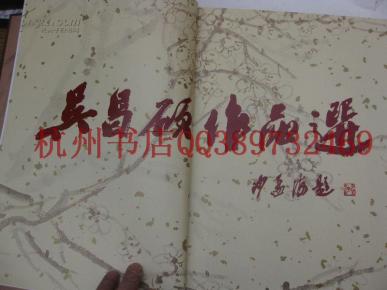 吳昌碩作品選
杭州书店QQ389732169
沙孟海題